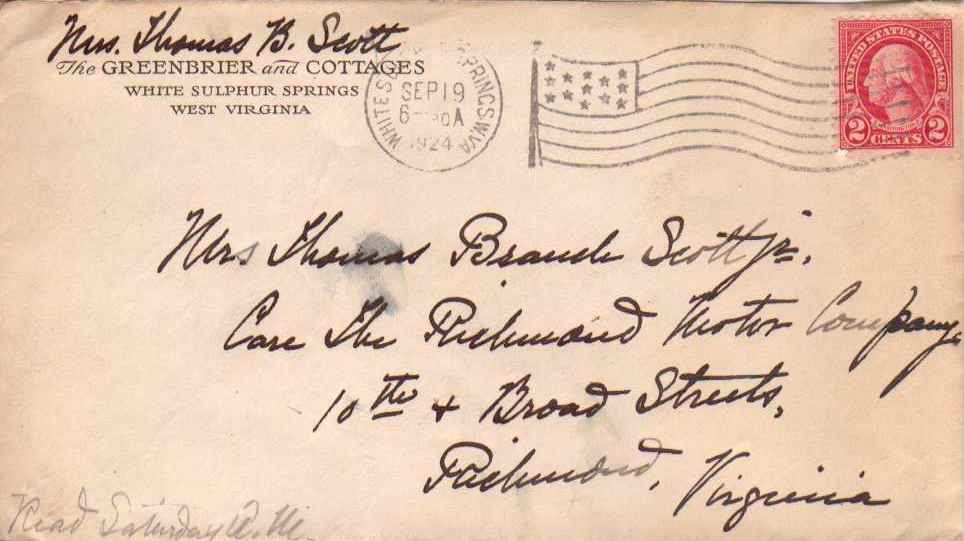 Mrs. Thomas B. Scott
The GREENBRIER and COTTAGES
WHITE SULPHUR SPRINGS
WEST VIRGINIA
WHITE S SPRINGS W.VA
SEP 19
6 A
1924
UNITED STATES POSTAGE
2 CENTS 2
Mrs Thomas Branch Scott Jr.,
Care The Richmond Motor Company,
10th + Broad Streets,
Richmond, Virginia
Read Saturday